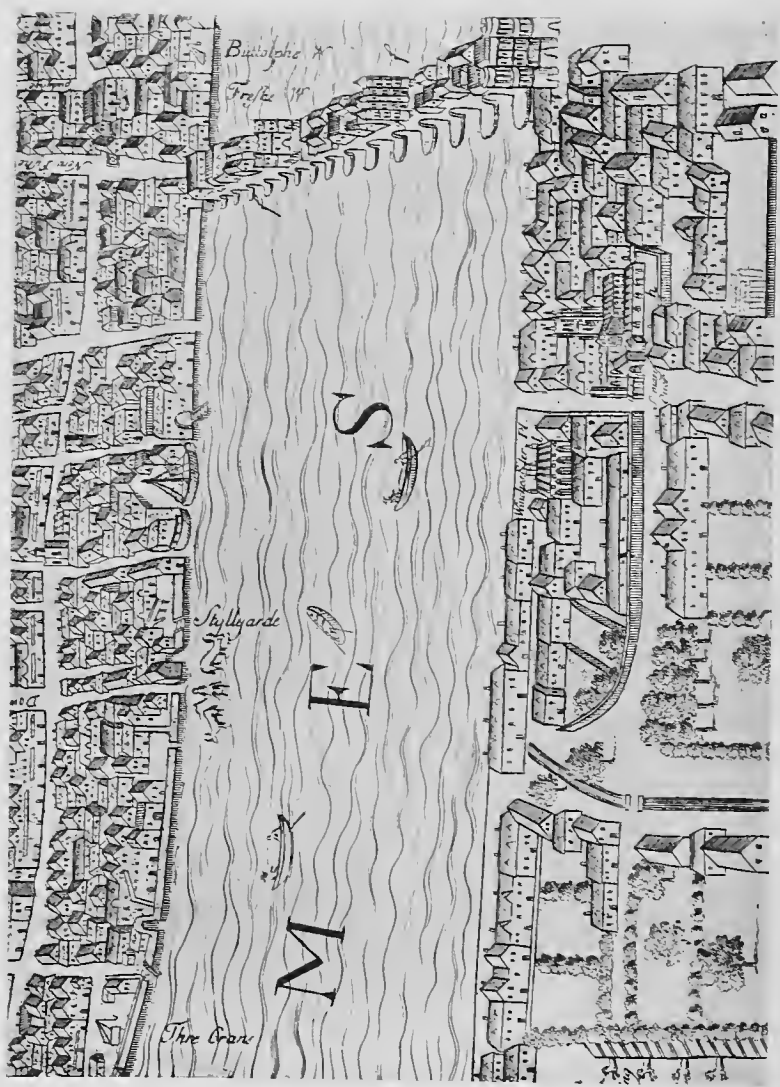 Buttolphe W
Freshe W
Styllyarde
M E S
Thre Crane